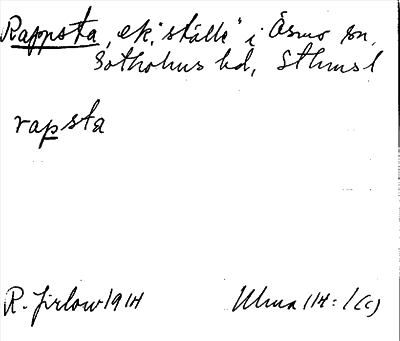 Rappsta, ek. "ställe" i Ösmo sn,
Sotholms hd, Sthmsl
rapsta
R. Jirlow 1914 Ulma 114:1(c)